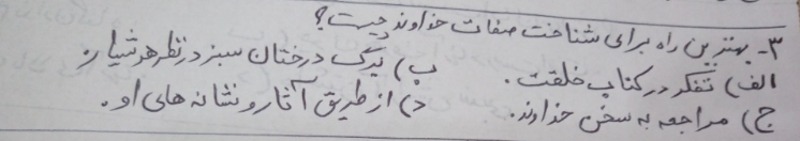 ۳- بهترین راه برای شناخت صفات خداوند چیست؟
الف) تفکر در کتاب خلقت. ب) برگ درختان سبز در نظر هوشیار.
ج) مراجعه به سخن خداوند. د) از طریق آثار و نشانه های او.